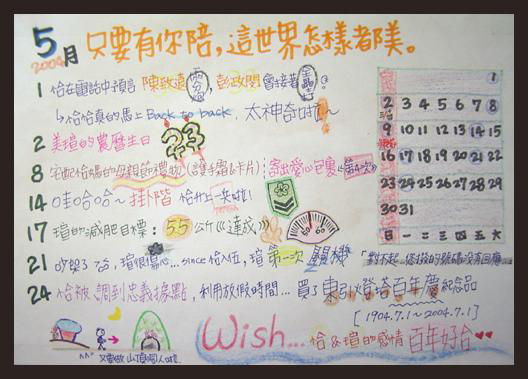 5月 只要有你陪，這世界怎樣都美。
2004
1 恰在電話中預言 陳致遠 ，彭政閔會接著 。
↳恰恰真的馬上Back to back，太神奇啦!~
2 美瑄的農曆生日 23
8 宅配恰媽的母親節禮物(護手霜&卡片) 寄出愛心包裹《第4次》
14 哇哈哈~掛階 恰升上一兵啦!
17 瑄的減肥目標：55公斤《達成》
21 吵架了 ，瑄很傷心…since恰入伍，瑄第一次關機「對不起，您撥的號碼沒有回應
24 恰被調到忠義據點，利用放假時間…買了東引燈塔百年慶紀念品
[1904.7.1~2004.7.1]
^^" 又要做山頂洞人啦
Wish… 恰&瑄的感情百年好合
1
2 3 4 5 6 7 8
9 10 11 12 13 14 15
16 17 18 19 20 21 22
23 24 25 26 27 28 29
30 31
日 一 二 三 四 五 六